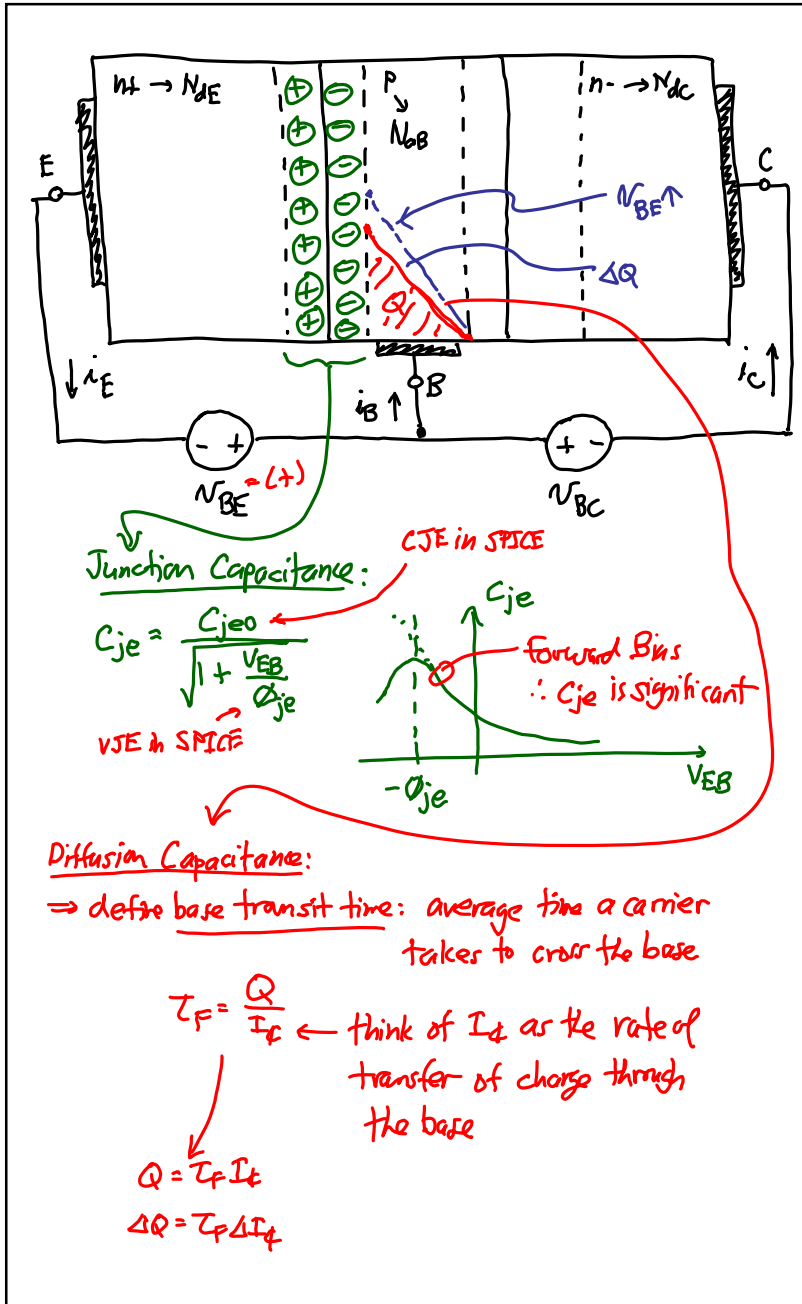 n+ → N_dE
P
N_aB
n- → N_dC
E
C
N_BE ↑
ΔQ
Q
i_E
i_B
B
i_C
- +
+ -
N_BE = (+)
N_BC
CJE in SPICE
Junction Capacitance:
C_je = C_jeo / √(1 + V_EB / Ø_je)
VJE in SPICE
C_je
Forward Bias
∴ C_je is significant
-Ø_je
V_EB
Diffusion Capacitance:
⇒ define base transit time: average time a carrier
takes to cross the base
τ_F = Q / I_C ← think of I_C as the rate of
transfer of charge through
the base
Q = τ_F I_C
ΔQ = τ_F ΔI_C